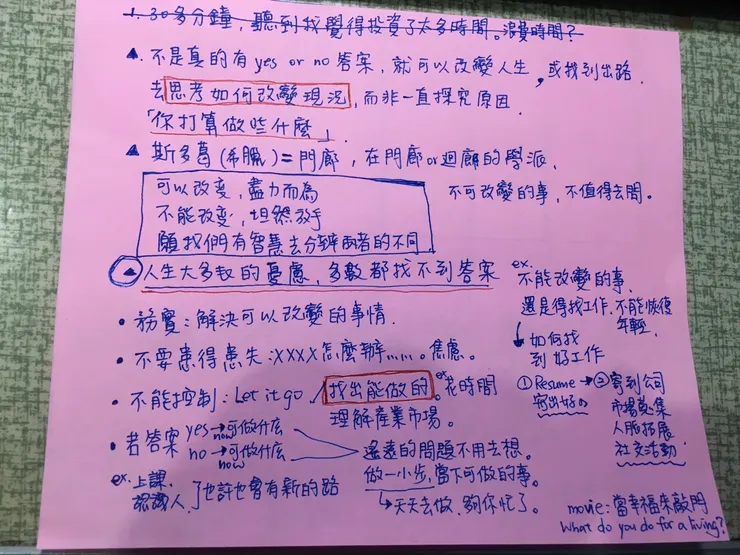 1. 30多分鐘，聽到我覺得投資了太多時間。浪費時間？
▲. 不是真的有 yes or no 答案，就可以改變人生，或找到出路.
去思考如何改變現況，而非一直探究原因.
「你打算做些什麼」
▲ 斯多葛(希臘)=門廊，在門廊or迴廊的學派.
可以改变，盡力而為
不能改变，坦然放手
願我們有智慧去分辨兩者的不同
不可改變的事，不值得去鬧。
▲ 人生大多数的憂慮，多數都找不到答案
• 務實：解決可以改變的事情.
• 不要患得患失：XXXX怎麼辦......。焦慮。
• 不能控制：Let it go，找出能做的。ex 花時間
理解産業市場。
• 若答案 yes→可做什広
now
no→可做什広
now
遙遠的問題不用去想.
做一小步，當下可做的事。
↳天天去做，夠你忙了。
ex. 上課、
認識人，了也許也會有新的路
ex.
不能改變的事.
還是得找工作.不能恢復
年輕.
↳ 如何找
到好工作
① Resume → ② 寄到公司
寫出好的
市場蒐集
人脈拓展
社交活動.
movie：當幸福來敲門
What do you do for a living?